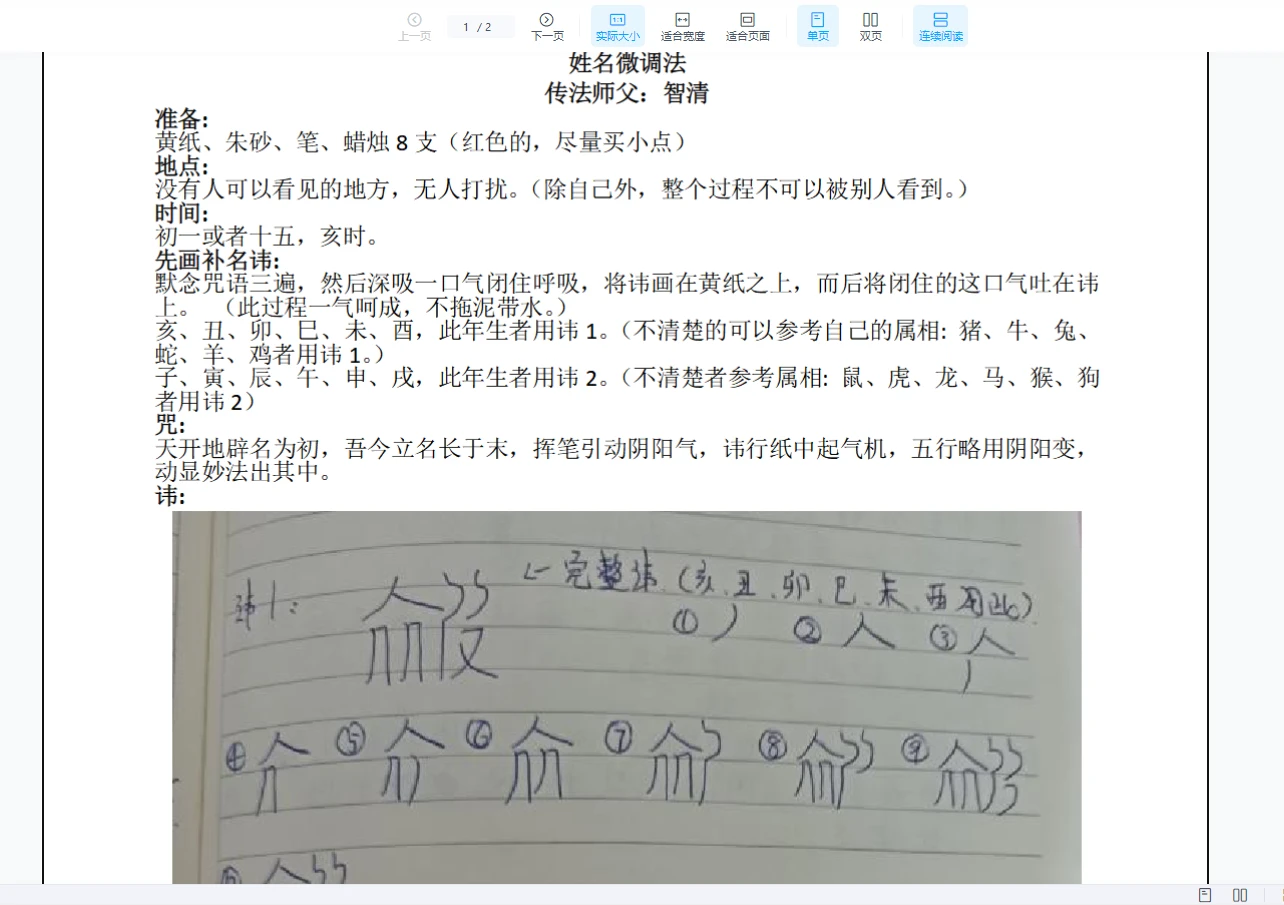 上一页
1 / 2
下一页
实际大小
适合宽度
适合页面
单页
双页
连续阅读
姓名微调法
传法师父：智清
准备:
黄纸、朱砂、笔、蜡烛 8 支（红色的，尽量买小点）
地点:
没有人可以看见的地方，无人打扰。（除自己外，整个过程不可以被别人看到。）
时间:
初一或者十五，亥时。
先画补名讳:
默念咒语三遍，然后深吸一口气闭住呼吸，将讳画在黄纸之上，而后将闭住的这口气吐在讳
上。（此过程一气呵成，不拖泥带水。）
亥、丑、卯、巳、未、酉，此年生者用讳 1。（不清楚的可以参考自己的属相: 猪、牛、兔、
蛇、羊、鸡者用讳 1。）
子、寅、辰、午、申、戌，此年生者用讳 2。（不清楚者参考属相: 鼠、虎、龙、马、猴、狗
者用讳 2）
咒:
天开地辟名为初，吾今立名长于末，挥笔引动阴阳气，讳行纸中起气机，五行略用阴阳变，
动显妙法出其中。
讳:
讳1: ←完整讳.(亥.丑.卯.巳.未.酉用此).
① ② ③
④ ⑤ ⑥ ⑦ ⑧ ⑨